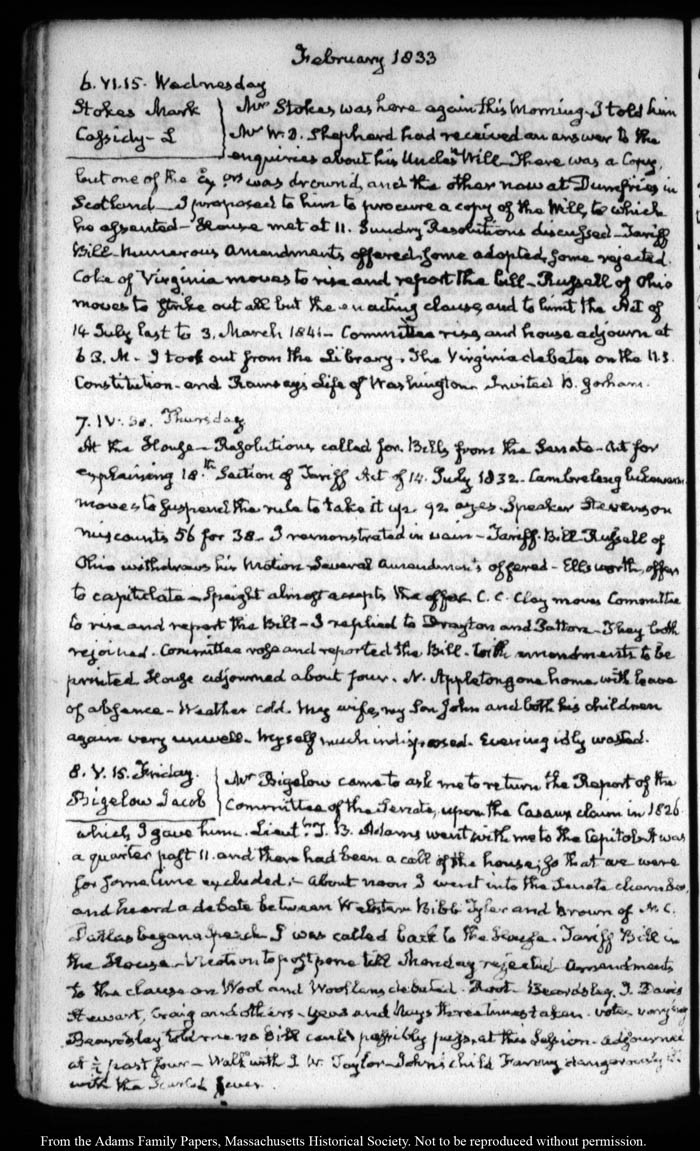 February 1833
6. VI.15. Wednesday
Stokes Mark
Cassidy - L
Mr Stokes was here again this Morning. I told him
Mr W. B. Shephard had received an answer to the
enquiries about his Uncle's Will - There was a Copy,
but one of the Exrs was drownd, and the other now at Dumfries in
Scotland - I proposed to him to procure a copy of the Will, to which
he assented - House met at 11. Sundry Resolutions discussed - Tariff
Bill - Numerous Amendments offered, some adopted, some rejected.
Coke of Virginia moves to rise and report the bill - Russell of Ohio
moves to strike out all but the enacting clause, and to limit the Act of
14 July last to 3. March 1841 - Committee rise, and house adjourn at
6 P. M. - I took out from the Library, The Virginia debates on the U.S.
Constitution - and Ramsays Life of Washington. Invited B. Gorham.
7. IV:30. Thursday
At the House - Resolutions called for. Bills from the Senate - Act for
explaining 18th Section of Tariff Act of 14. July 1832. Cambreleng
moves to suspend the rule to take it up. 92 ayes. Speaker Stevenson
miscounts 56 for 38 - I remonstrated in vain - Tariff Bill - Russell of
Ohio withdraws his Motion. Several Amendments offered - Ellsworth, offers
to capitulate - Speight almost accepts the offer. C. C. Clay moves Committee
to rise and report the Bill - I replied to Drayton and Patton - They both
rejoined. Committee rose and reported the Bill - with amendments to be
printed House adjourned about four. N. Appleton gone home with leave
of absence - Weather cold. My wife, my Son John and both his children
again very unwell - Myself much indisposed. Evening idly wasted.
8. V. 15. Friday.
Bigelow Jacob
Mr Bigelow came to ask me to return the Report of the
Committee of the Senate, upon the Cazaux claim in 1826
which I gave him. Lieutt T. B. Adams went with me to the Capitol - It was
a quarter past 11. and there had been a call of the house; so that we were
for some time excluded - About noon I went into the Senate chamber,
and heard a debate between Webster Bibb Tyler and Brown of N. C.
Dallas began a Speech. I was called back to the House. Tariff Bill in
the House - Motion to postpone till Monday rejected - Amendments
to the clause on Wool and Woollens debated. Root - Beardsley, J. Davis
Stewart, Craig and others - Yeas and Nays three times taken. votes varying
Beardsley told me no bill could possibly pass, at this Session - Adjourned
at ½ past four - Walk with J W. Taylor - John's child Fanny dangerously ill
with the Scarlet fever.
From the Adams Family Papers, Massachusetts Historical Society. Not to be reproduced without permission.